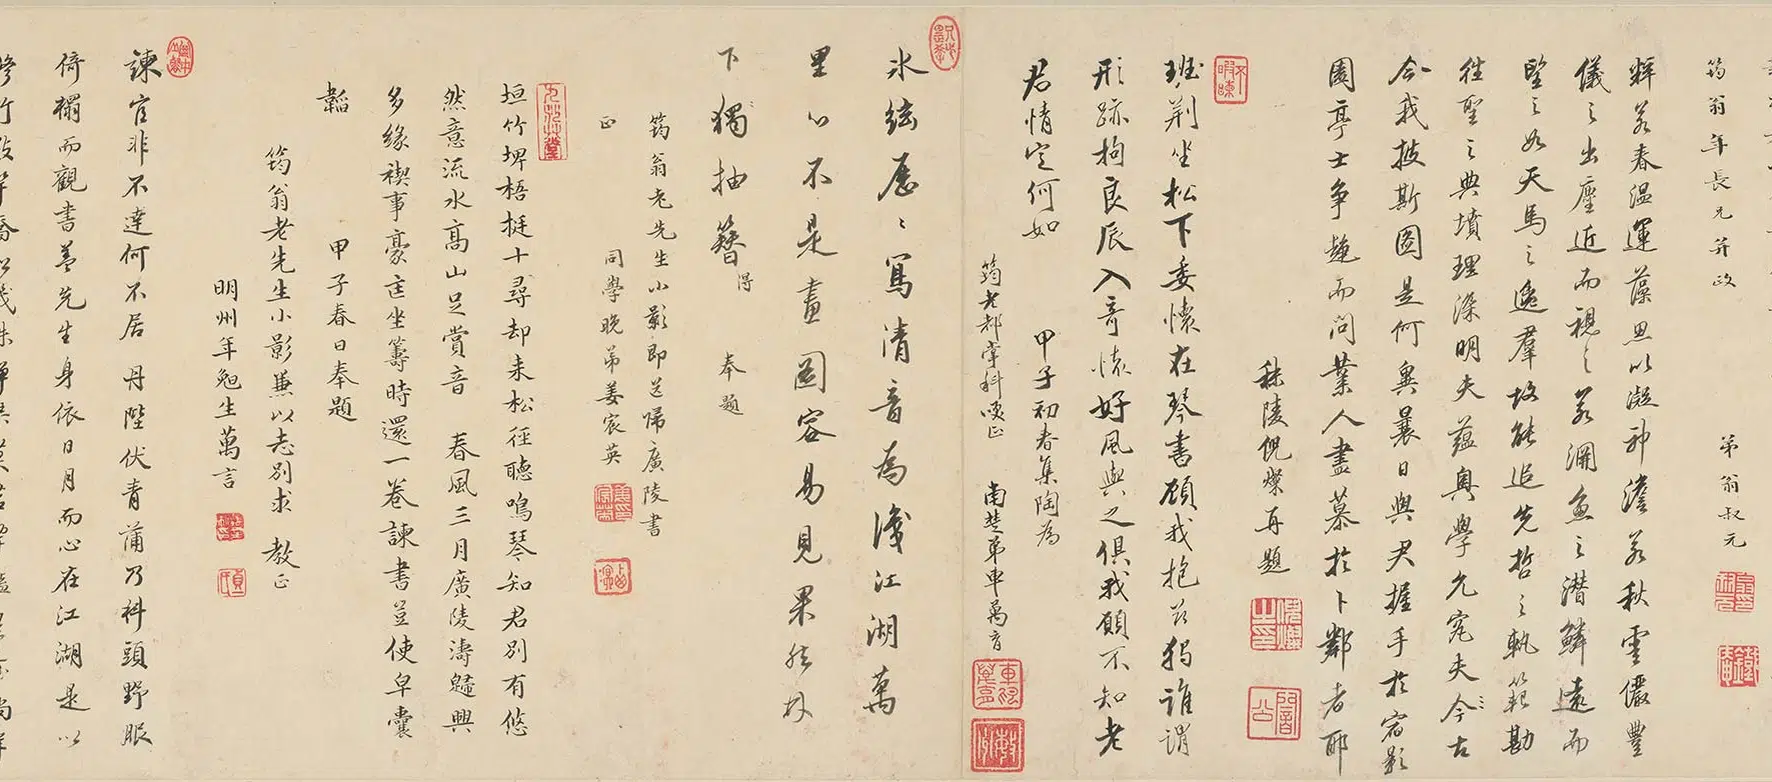 筠翁年長兄并政
弟翁叔元
粹若春溫運藻思以凝神澹若秋雲儼豐
儀之出塵近而視之若淵魚之潛鱗遠而
望之如天馬之逸羣故能追先哲之軌範勘
往聖之典墳理深明夫蘊奧學允究夫今古
今我披斯圖是何異曩日與君握手於宿影
園亭士爭趨而問業人盡慕於卜鄰者耶
秣陵倪燦再題
班荆坐松下委懷在琴書顧我抱茲獨誰謂
形跡拘良辰入奇懷好風與之俱我願不知老
君情定何如
甲子初春集陶為
筠老都掌科噱正
南楚弟車萬育
冰絃歷歷寫清音為淺江湖萬
里心不是畫圖容易見果然林
下獨抽簪得
奉題
筠翁老先生小影即送歸廣陵書
正
同學晚弟姜宸英
垣竹埤梧挺十尋却來松徑聽鳴琴知君別有悠
然意流水高山足賞音
春風三月廣陵濤歸興
多緣禊事豪坐籌時還一卷諫書豈使皁囊
韜
甲子春日奉題
筠翁老先生小影兼以志別求教正
明州年勉生萬言
諫官非不達何不居丹陛伏青蒲乃科頭野服
倚榻而觀書蓋先生身依日月而心在江湖是以